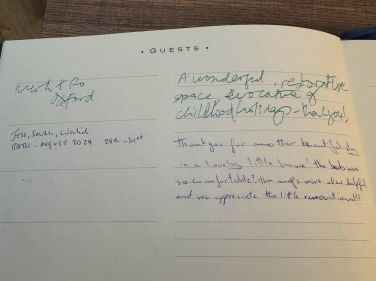 • GUESTS •
Oxford
A wonderful, restorative
space evocative of
childhood holidays - thank you!
Jess, Sarah,
BATH - AUGUST 2024 29th - 31st
thank you for another beautiful stay
in a lovely little house! the beds were
so comfortable! the maps were also helpful
and we appreciate the little renovations!!